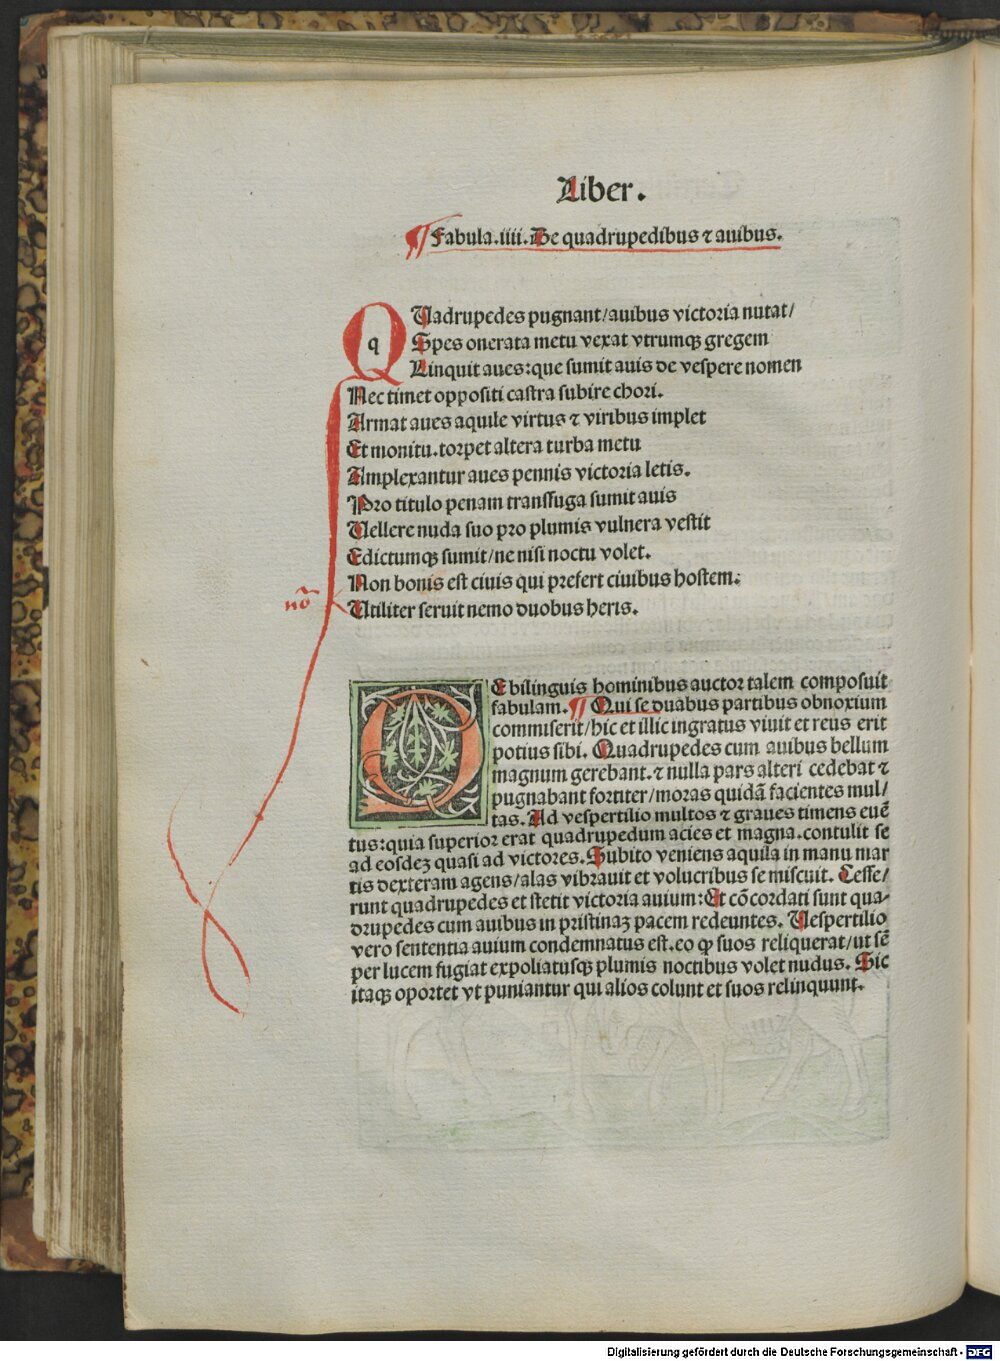 Liber.
¶ Fabula.iiii.De quadrupedibus ⁊ auibus.
QUadrupedes pugnant/auibus victoria nutat/
Spes onerata metu vexat vtrumqꝫ gregem
Linquit aues:que sumit auis de vespere nomen
Nec timet oppositi castra subire chori.
Armat aues aquile virtus ⁊ viribus implet
Et monitu.torpet altera turba metu
Amplexantur aues pennis victoria letis.
Pro titulo penam transfuga sumit auis
Uellere nuda suo pro plumis vulnera vestit
Edictumqꝫ sumit/ne nisi noctu volet.
Non bonis est ciuis qui prefert ciuibus hostem:
nō Utiliter seruit nemo duobus heris.
DE bilinguis hominibus auctor talem composuit
fabulam. ¶ Qui se duabus partibus obnoxium
commiserit/hic et illic ingratus viuit et reus erit
potius sibi. Quadrupedes cum auibus bellum
magnum gerebant.⁊ nulla pars alteri cedebat ⁊
pugnabant fortiter/moras quidā facientes mul/
tas. Ad vespertilio multos ⁊ graues timens euē
tus:quia superior erat quadrupedum acies et magna.contulit se
ad eosdeꝫ quasi ad victores. Subito veniens aquila in manu mar
tis dexteram agens/alas vibrauit et volucribus se miscuit. Cesse/
runt quadrupedes et stetit victoria auium: Et cōcordati sunt qua-
drupedes cum auibus in pristinaꝫ pacem redeuntes. Uespertilio
vero sententia auium condemnatus est.eo ꝙ suos reliquerat/ut sē
per lucem fugiat expoliatusqꝫ plumis noctibus volet nudus. Sic
itaqꝫ oportet vt puniantur qui alios colunt et suos relinquunt.
Digitalisierung gefördert durch die Deutsche Forschungsgemeinschaft - DFG